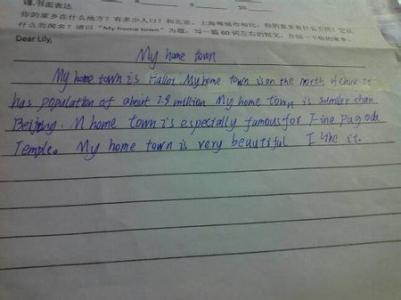 谨.书面表达
你的家乡在什么地方?有多少人口?和北京、上海等城市相比,你的家乡有什么不同?它以
什么而闻名?请以"My home town"为题,写一篇60词左右的短文,介绍一下你的家乡。
Dear Lily,
My home town
My home town is My home town is on the north of china It
has population of about 2.9 million My home town is smaller than
Beijing. M home town is especially famous for Pagoda
Temple. My home town is very beautiful I like it.